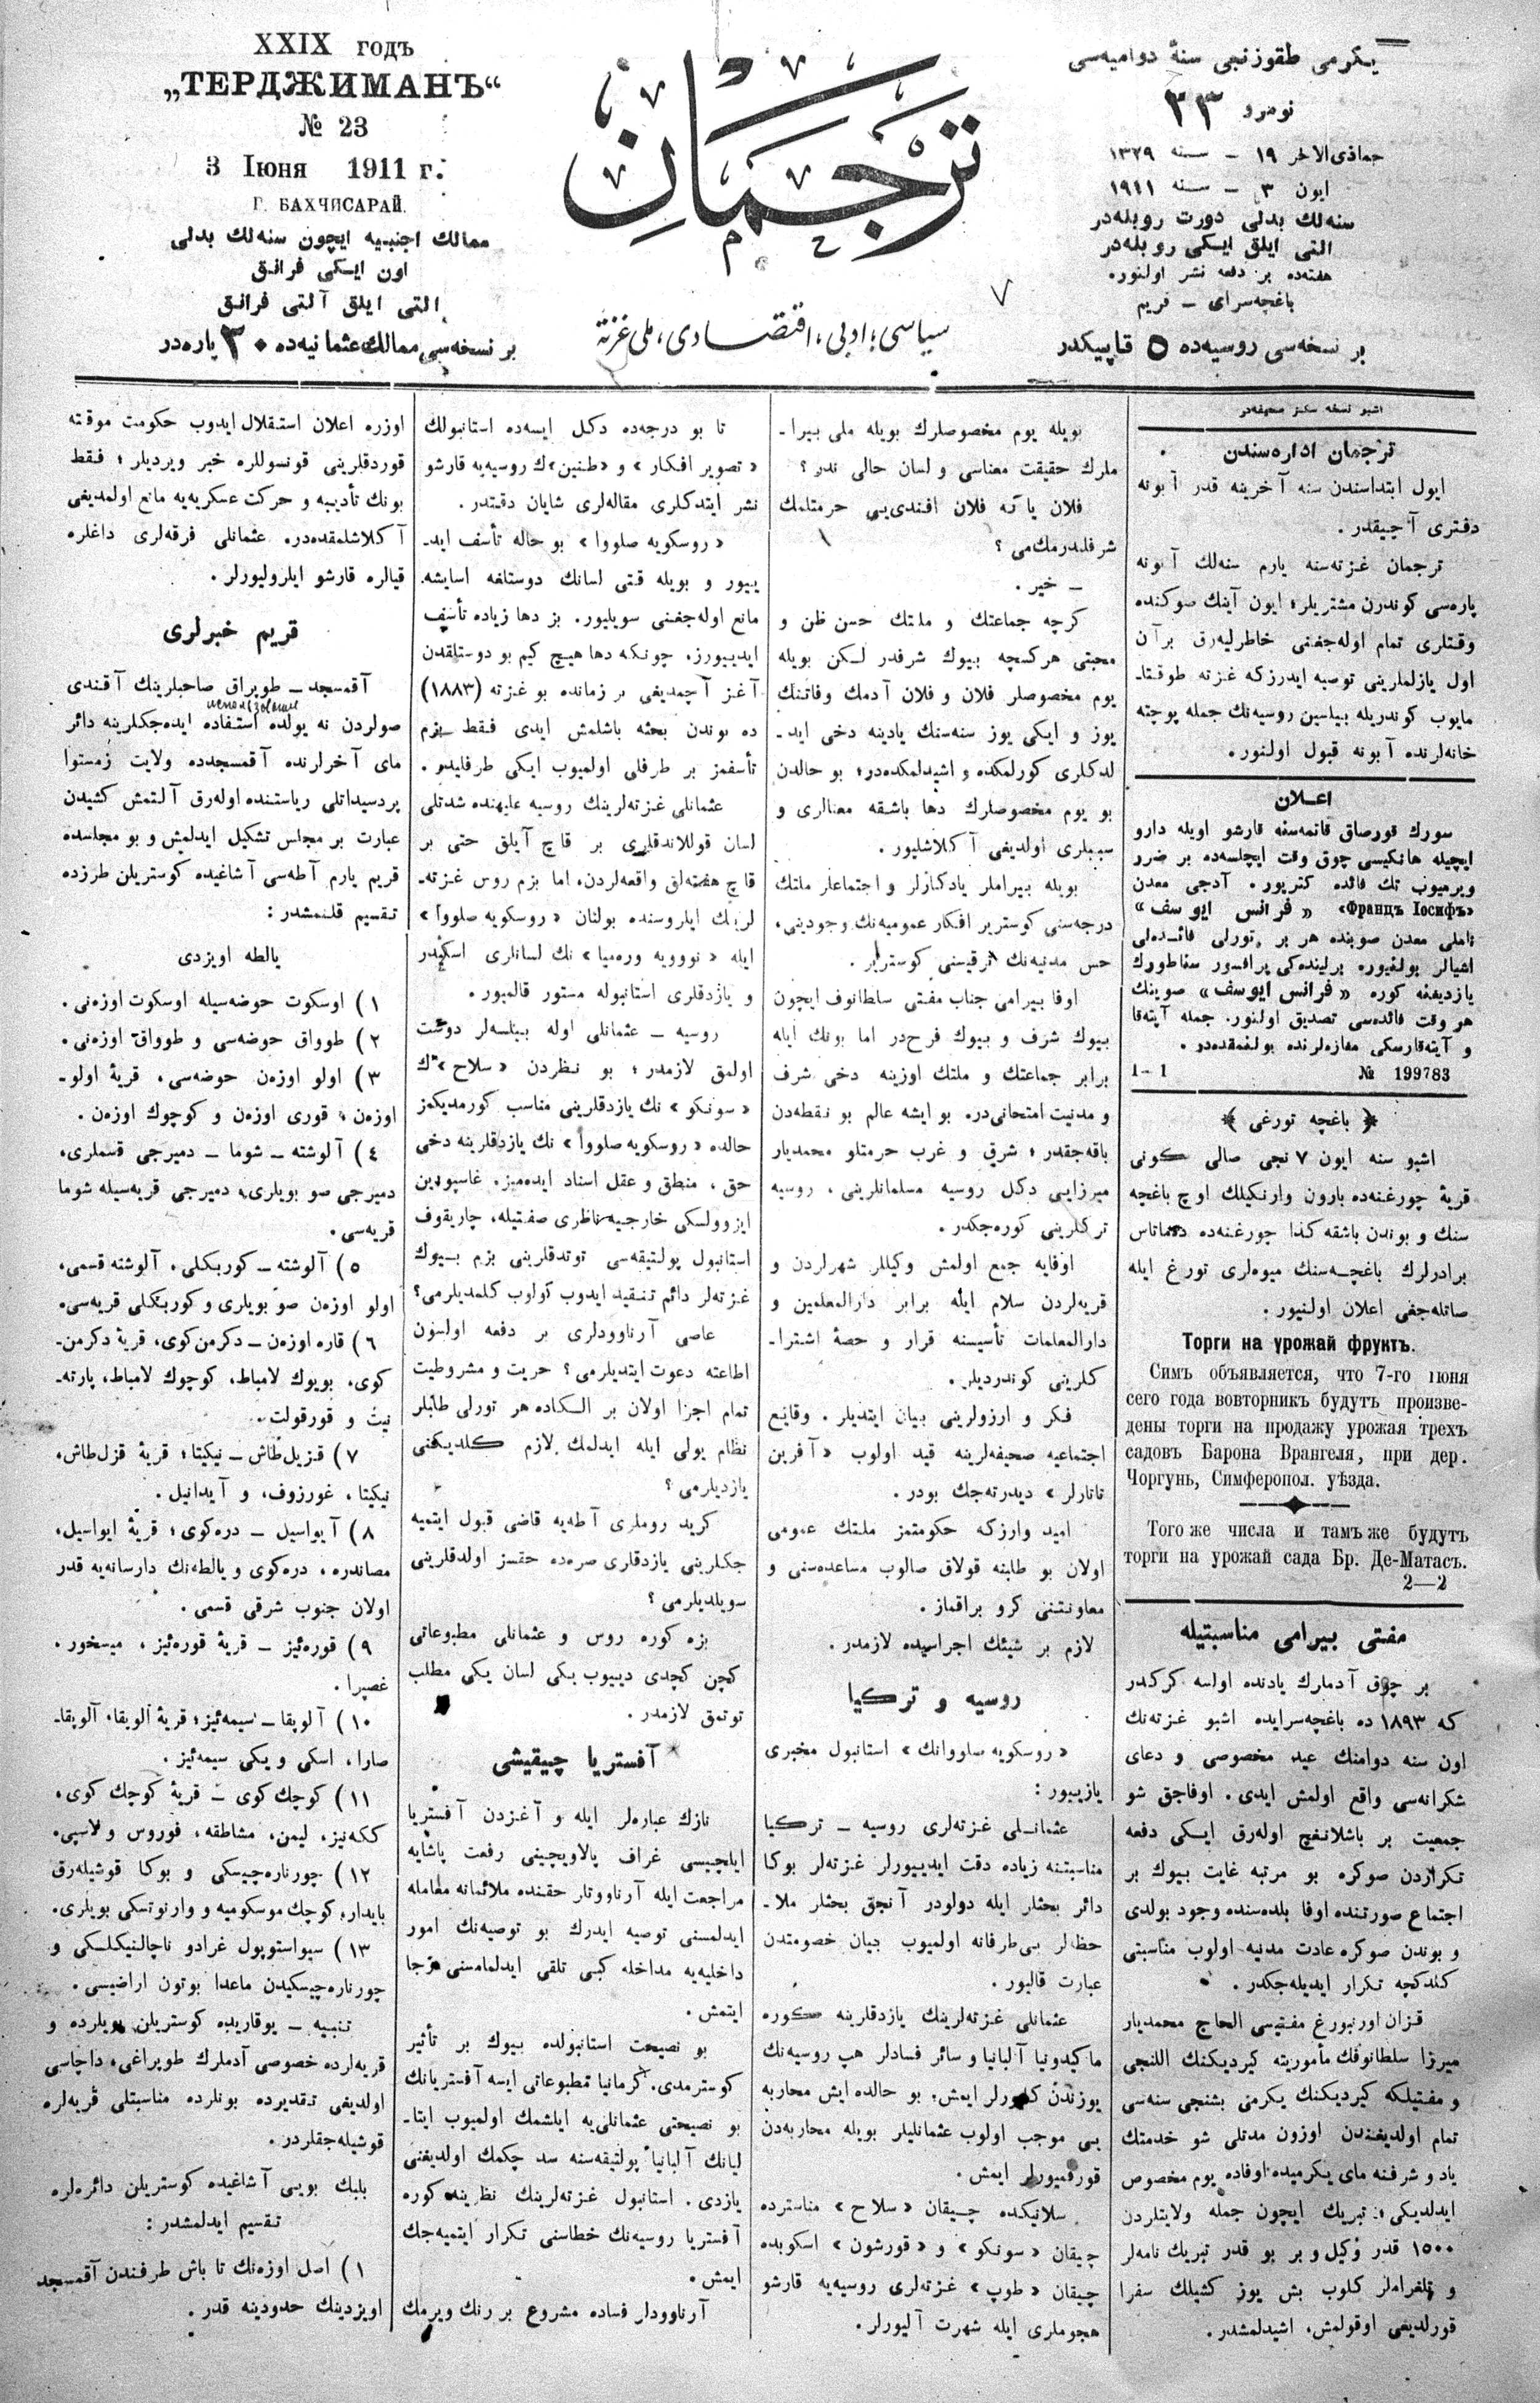 XXIX годъ
„ТЕРДЖИМАНЪ“
№ 23
3 Іюня 1911 г.
Г. БАХЧИСАРАЙ.
ممالك اجنبيه ايچون سنه‌لك بدلى
اون ايكى فرانق
التى ايلق آلتى فرانق
بر نسخه‌سى ممالك عثمانيه‌ده ٣٠ پاره‌در
ترجمان
سياسى، ادبى، اقتصادى، ملى غزته
يكرمى طقوزنجى سنۀ دواميه‌سى
نومرو ٢٣
جماذى الاخر ١٩ – سنه ١٣٢٩
ايون ٣ – سنه ١٩١١
سنه‌لك بدلى دورت روبله‌در
التى ايلق ايكى روبله‌در
هفته‌ده بر دفعه نشر اولنور.
باغچه‌سراى – قريم
بر نسخه‌سى روسيه‌ده ٥ قاپيكدر
اشبو نسخه سكز صحيفه‌در
ترجمان اداره‌سندن
ايول ابتداسندن سنه آخرينه قدر آبونه
دفترى آچيقدر.
ترجمان غزته‌سنه يارم سنه‌لك آبونه
پاره‌سى كوندرن مشتريلر، ايون آينك صوكنده
وقتلرى تمام اوله‌جغنى خاطرليه‌رق بر آن
اول يازلملرينى توصيه ايدرزكه غزته طوقتا-
مايوب كوندريله بيلسين روسيه‌نك جمله پوچته
خانه‌لرنده آبونه قبول اولنور.
اعلان
سورك قورصاق قاتمه‌سنه قارشو اويله دارو
ايچيله هانكيسى چوق وقت ايچلسه‌ده بر ضرر
ويرميوب تك فائده كتريور. آدجى معدن
«Францъ Іосифъ» «فرانس ايوسف»
ناملى معدن صوينده هر بر تورلى فائده‌لى
اشيالر بولنيور. برلينده‌كى پرافسور سناطورك
يازديغنه كوره «فرانس ايوسف» صوينك
هر وقت فائده‌سى تصديق اولنور. جمله آپته‌قا
و آپته‌قارسكى مغازه‌لرنده بولنمقده‌در.
№ 199783 1–1
﴿ باغچه تورغى ﴾
اشبو سنه ايون ٧ نجى صالى كونى
قريۀ چورغنه‌ده بارون وارنكيلك اوچ باغچه
سنك و بوندن باشقه كذا چورغنه‌ده دماتاس
برادرلرك باغچه‌سنك ميوه‌لرى تورغ ايله
صاتله‌جغى اعلان اولنيور.
Торги на урожай фруктъ.
Симъ объявляется, что 7-го іюня
сего года вовторникъ будутъ произве-
дены торги на продажу урожая трехъ
садовъ Барона Врангеля, при дер.
Чоргунь, Симферопол. уѣзда.
Того же числа и тамъ же будутъ
торги на урожай сада Бр. Де-Матасъ.
2—2
مفتى بيرامى مناسبتيله
بر چوق آدملرك يادنده اولسه كركدر
كه ١٨٩٣ ده باغچه‌سرايده اشبو غزته‌نك
اون سنه دوامنك عيد مخصوصى و دعاى
شكرانه‌سى واقع اولمش ايدى. اوفاجق شو
جمعيت بر باشلانغچ اوله‌رق ايكى دفعه
تكراردن صوكره بو مرتبه غايت بيوك بر
اجتماع صورتنده اوفا بلده‌سنده وجود بولدى
و بوندن صوكره عادت مدنيه اولوب مناسبتى
كلدكچه تكرار ايديله‌جكدر.
قزان اورنبورغ مفتيسى الحاج محمديار
ميرزا سلطانوفك مأموريته كيرديكنك اللنجى
و مفتيلكه كيرديكنك يكرمى بشنجى سنه‌سى
تمام اولديغندن اوزون مدتلى شو خدمتك
ياد و شرفنه ماى يكرميده اوفاده يوم مخصوص
ايدلديكى، تبريك ايچون جمله ولايتلردن
١٥٠٠ قدر وكيل و بر بو قدر تبريك نامه‌لر
و تلغرافلر كلوب بش يوز كشيلك سفرا
قورلديغى اوقولمش، اشيدلمشدر.
بويله يوم مخصوصلرك بويله ملى بيرا-
ملرك حقيقت معناسى و لسان حالى ندر؟
فلان ياكه فلان افندى‌يى حرمتلمك
شرفلندرمك‌مى؟
– خير.
كرچه جماعتك و ملتك حسن ظن و
محبتى هركسچه بيوك شرفدر لكن بويله
يوم مخصوصلر فلان و فلان آدمك وفاتنك
يوز و ايكى يوز سنه‌سنك يادينه دخى ايد-
لدكلرى كورلمكده و اشيدلمكده‌در؛ بو حالدن
بو يوم مخصوصلرك دها باشقه معنالرى و
سببلرى اولديغى آكلاشليور.
بويله بيراملر يادكارلر و اجتماعلر ملتك
درجه‌سنى كوسترير افكار عموميه‌نك وجودينى،
حس مدنيه‌نك ترقيسنى كوسترير.
اوفا بيرامى جناب مفتى سلطانوف ايچون
بيوك شرف و بيوك فرح‌در اما بونك ايله
برابر جماعتك و ملتك اوزينه دخى شرف
و مدنيت امتحانى‌در. بو ايشه عالم بو نقطه‌دن
باقه‌جقدر؛ شرق و غرب حرمتلو محمديار
ميرزايى دكل روسيه مسلمانلرينى، روسيه
تركلرينى كوره‌جكدر.
اوفايه جمع اولمش وكيللر شهرلردن و
قريه‌لردن سلام ايله برابر دارالمعلمين و
دارالمعلمات تأسيسنه قرار و حصۀ اشترا-
كلرينى كوندرديلر.
فكر و ارزولرينى بيان ايتديلر. وقايع
اجتماعيه صحيفه‌لرينه قيد اولوب «آفرين
تاتارلر» ديدرته‌جك بودر.
اميد وارزكه حكومتمز ملتك عمومى
اولان بو طلبنه قولاق صالوب مساعده‌سنى و
معاونتنى كرو براقماز.
لازم بر شيئك اجراسيده لازمدر.
روسيه و تركيا
«روسكويه صلووانك» استانبول مخبرى
يازييور:
عثمانلى غزته‌لرى روسيه – تركيا
مناسبتنه زياده دقت ايدييورلر غزته‌لر بوكا
دائر بحثلر ايله دولودر آنجق بحثلر ملا-
حظه‌لر بى‌طرفانه اولميوب بيان خصومتدن
عبارت قاليور.
عثمانلى غزته‌لرينك يازدقلرينه كوره
ماكيدونيا آلبانيا و سائر فسادلر هپ روسيه‌نك
يوزندن كليورلر ايمش؛ بو حالده ايش محاربه
يى موجب اولوب عثمانليلر بويله محاربه‌دن
قورقميورلر ايمش.
سلانيكده چيقان «سلاح» مناسترده
چيقان «سونكو» و «قورشون» اسكوبده
چيقان «طوپ» غزته‌لرى روسيه‌يه قارشو
هجوملرى ايله شهرت آليورلر.
تا بو درجه‌ده دكل ايسه‌ده استانبولك
«تصوير افكار» و «طنين»ك روسيه‌يه قارشو
نشر ايتدكلرى مقاله‌لرى شايان دقتدر.
«روسكويه صلووا» بو حاله تأسف ايد-
ييور و بويله قتى لسانك دوستلغه اسايشه
مانع اوله‌جغنى سويليور. بز دها زياده تأسف
ايدييورز. چونكه دها هيچ كيم بو دوستلقدن
آغز آچمديغى بر زمانده بو غزته (١٨٨٣)
ده بوندن بحثه باشلمش ايدى فقط بزم
تأسفمز بر طرفلى اولميوب ايكى طرفليدر.
عثمانلى غزته‌لرينك روسيه عليهنده شدتلى
لسان قوللاندقلرى بر قاچ آيلق حتى بر
قاچ هفته‌لق واقعه‌لردن، اما بزم روس غزته-
لرينك ايلروسنده بولنان «روسكويه صلووا»
ايله «نوويه وره‌ميا» نك لسانلرى اسكيدر
و يازدقلرى استانبوله مستور قالميور.
روسيه – عثمانلى اوله بيلسه‌لر دوست
اولمق لازمدر؛ بو نظردن «سلاح»ك
«سونكو» نك يازدقلرينى مناسب كورمديكمز
حالده «روسكويه صلووا» نك يازدقلرينه دخى
حق، منطق و عقل اسناد ايده‌ميز. غاسپودين
ايزوولسكى خارجيه ناظرى صفتيله، چاريقوف
استانبول پولتيقه‌سى توتدقلرينى بزم بيوك
غزته‌لر دائم تنقيد ايدوب كولوب كلمديلرمى؟
عاصى آرناوودلرى بر دفعه اولسون
اطاعته دعوت ايتديلرمى؟ حريت و مشروطيت
تمام اجزا اولان بر الكاده هر تورلى طلبلر
نظام يولى ايله ايدلمك لازم كلديكنى
يازديلرمى؟
كريد روملرى آطه‌يه قاضى قبول ايتميه
جكلرينى يازدقلرى صره‌ده حقسز اولدقلرينى
سويلديلرمى؟
بزه كوره روس و عثمانلى مطبوعاتى
كچن كچدى دييوب يكى لسان يكى مطلب
توتمق لازمدر.
آفستريا چيقيشى
نازك عباره‌لر ايله و آغزدن آفستريا
ايلچيسى غراف پالاويچينى رفعت پاشايه
مراجعت ايله آرناووتلر حقنده ملائمانه معامله
ايدلمسنى توصيه ايدرك بو توصيه‌نك امور
داخليه‌يه مداخله كبى تلقى ايدلمامسنى رجا
ايتمش.
بو نصيحت استانبولده بيوك بر تأثير
كوسترمدى. كرمانيا مطبوعاتى ايسه آفستريانك
بو نصيحتى عثمانلى‌يه ايلشمك اولميوب ايتا-
ليانك آلبانيا پولتيقه‌سنه سد چكمك اولديغنى
يازدى. استانبول غزته‌لرينك نظرينه كوره
آفستريا روسيه‌نك خطاسنى تكرار ايتميه‌جك
ايمش.
آرناوودلر فساده مشروع بر رنك ويرمك
اوزره اعلان استقلال ايدوب حكومت موقته
قوردقلرينى قونسوللره خبر ويرديلر؛ فقط
بونك تأديبه و حركت عسكريه‌يه مانع اولمديغى
آكلاشلمقده‌در. عثمانلى فرقه‌لرى داغلره
قيالره قارشو ايلروليورلر.
قريم خبرلرى
آقمسجد – طوپراق صاحبلرينك آقندى
صولردن نه يولده استفاده ايده‌جكلرينه دائر
ماى آخرلرنده آقمسجدده ولايت زمستوا
پردسيداتلى رياستنده اوله‌رق آلتمش كشيدن
عبارت بر مجلس تشكيل ايدلمش و بو مجلسده
قريم يارم آطه‌سى آشاغيده كوستريلن طرزده
تقسيم قلنمشدر:
يالطه اويزدى
١) اوسكوت حوضه‌سيله اوسكوت اوزه‌نى.
٢) طوواق حوضه‌سى و طوواق اوزه‌نى.
٣) اولو اوزه‌ن حوضه‌سى، قريۀ اولو-
اوزه‌ن، قورى اوزه‌ن و كوچوك اوزه‌ن.
٤) آلوشته – شوما – دميرجى قسملرى،
دميرجى صو بويلرى، دميرجى قريه‌سيله شوما
قريه‌سى.
٥) آلوشته – كوربكلى، آلوشته قسمى،
اولو اوزه‌ن صو بويلرى و كوربكلى قريه‌سى.
٦) قاره اوزه‌ن – دكرمن‌كوى، قريۀ دكرمن-
كوى، بويوك لامباط، كوچوك لامباط، پارته-
نيت و قورقولت.
٧) قزيل‌طاش – نيكيتا؛ قريۀ قزل‌طاش،
نيكيتا، غورزوف، و آيدانيل.
٨) آيواسيل – دره‌كوى؛ قريۀ ايواسيل،
مصاندره، دره‌كوى و يالطه‌نك دارسانه‌يه قدر
اولان جنوب شرقى قسمى.
٩) قوره‌ئيز – قريۀ قوره‌ئيز، ميسخور،
غصپرا.
١٠) آلوپقا – سيمه‌ئيز؛ قريۀ آلوپقا، آلوپقا-
صارا، اسكى و يكى سيمه‌ئيز.
١١) كوچك كوى – قريۀ كوچك كوى،
ككه‌نيز، ليمن، مشاطقه، فوروس و لاسپى.
١٢) چورناره‌چيسكى و بوكا قوشيله‌رق
بايدار، كوچك موسكوميه و وارنوتسكى بويلرى.
١٣) سيواستوپول غرادو ناچالنيكلسكى و
چورناره‌چيسكيدن ماعدا بوتون اراضيسى.
تنبيه – يوقاريده كوستريلن بويلرده و
قريه‌لرده خصوصى آدملرك طوپراغى، داچاسى
اولديغى تقديرده بونلرده مناسبتلى قريه‌لره
قوشيله‌جقلردر.
بلبك بويى آشاغيده كوستريلن دائره‌لره
تقسيم ايدلمشدر:
١) اصل اوزه‌نك تا باش طرفندن آقمسجد
اويزدينك حدودينه قدر.